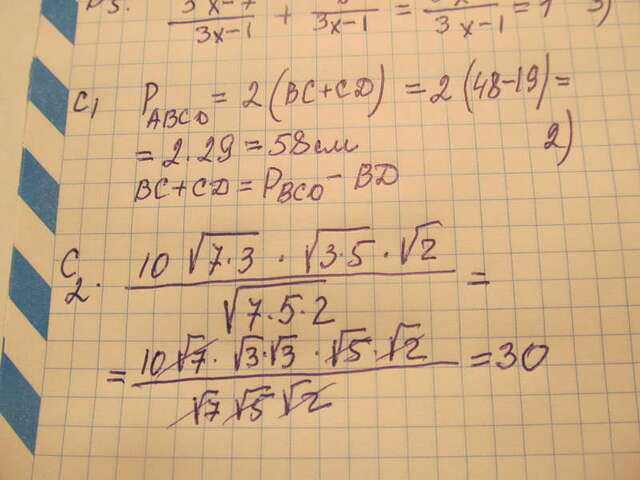 3x-1 + 3x-1 = 3x-1 = 1 3)
C1 P_ABCD = 2 (BC+CD) = 2 (48-19) =
= 2·29 = 58 см 2)
BC+CD = P_BCD - BD
C2. (10 √(7·3) · √(3·5) · √2) / √(7·5·2) =
= (10√7 · √3·√3 · √5·√2) / (√7 √5 √2) = 30